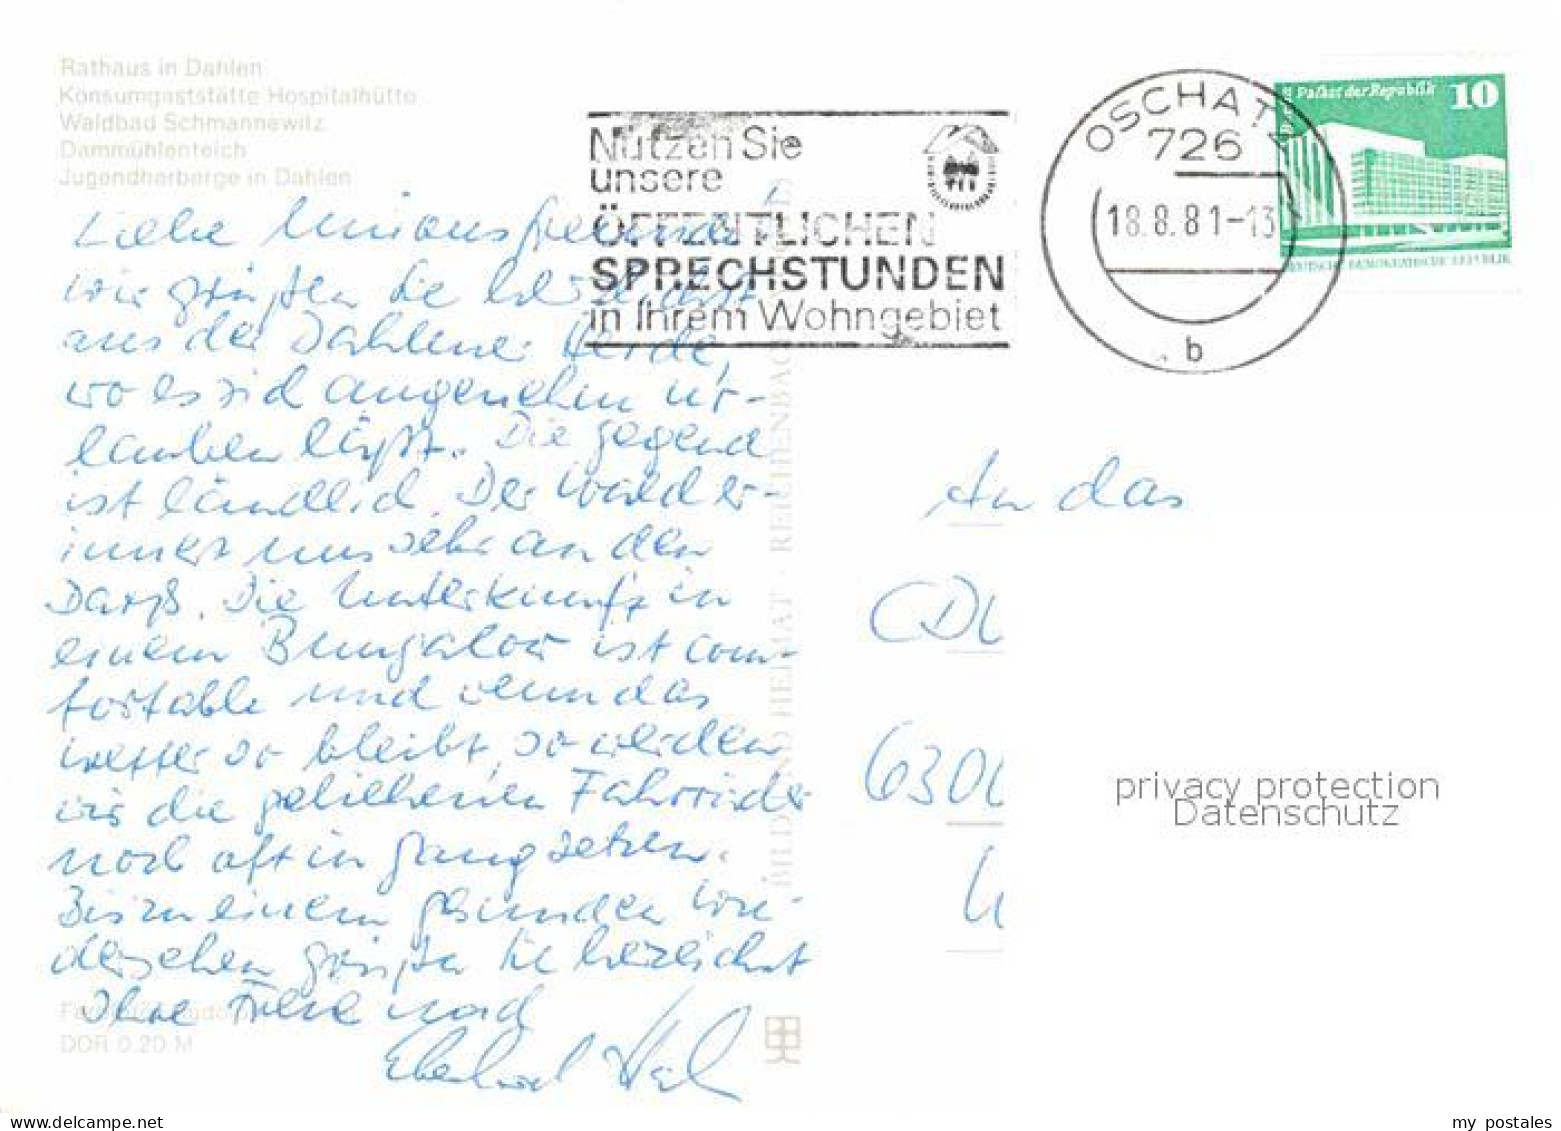 Rathaus in Dahlen
Konsumgaststätte Hospitalhütte
Waldbad Schmannewitz
Dammühlenteich
Jugendherberge in Dahlen
Nutzen Sie
unsere
ÖFFENTLICHEN
SPRECHSTUNDEN
in Ihrem Wohngebiet
OSCHATZ
726
18.8.81-13
b
Palast der Republik 10
DEUTSCHE DEMOKRATISCHE REPUBLIK
Liebe Unionsfreunde
wir grüßen Sie herzlichst
aus der Dahlener Heide,
wo es sich angenehm ur-
lauben läßt. Die Gegend
ist ländlich. Der Wald er-
innert uns sehr an den
Darß. Die Unterkunft in
einem Bungalow ist com-
fortable und wenn das
Wetter so bleibt, so werden
wir die geliehenen Fahrräder
noch oft in Gang setzen.
Bis zu einem gesunden Wie-
dersehen grüßen Sie herzlichst
Ihre
Eberhard
An das
CDU
6300
BILD UND HEIMAT · REICHENBACH
DDR 0.20 M
privacy protection
Datenschutz
my postales